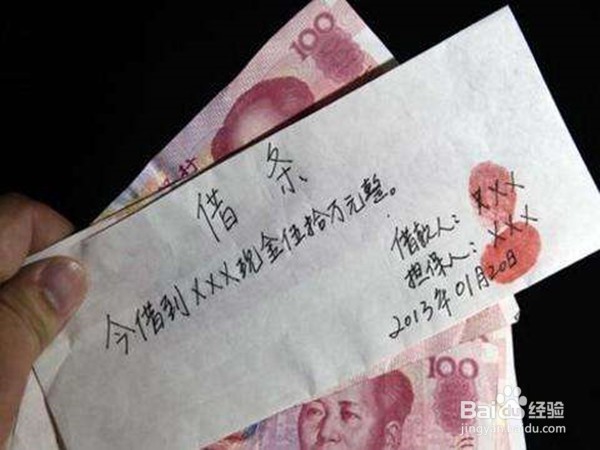 100
借条
今借到XXX现金伍拾万元整。
借款人：XXX
担保人：XXX
2013年01月20日
100
Bai 经验
jingyan.baidu.com